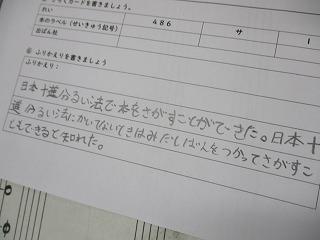 カードを書きましょう。
れい
本のラベル（せいきゅう記号） 486 サ 1
出ぱん社
⑥ ふりかえりを書きましょう
ふりかえり：
日本十進分るい法で本をさがすことができた。日本十
進分るい法にかいてないときはみだしばんをつかってさがすこ
ともできると知れた。